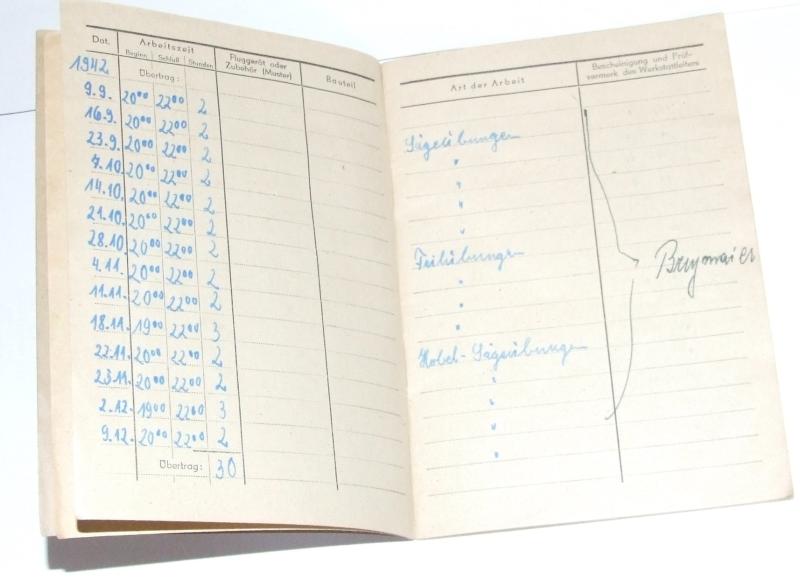 Dat. Arbeitszeit Fluggerät oder Zubehör (Muster) Bauteil
Beginn Schluß Stunden
1942 Übertrag:
9.9. 20⁰⁰ 22⁰⁰ 2
16.9. 20⁰⁰ 22⁰⁰ 2
23.9. 20⁰⁰ 22⁰⁰ 2
7.10. 20⁰⁰ 22⁰⁰ 2
14.10. 20⁰⁰ 22⁰⁰ 2
21.10. 20⁰⁰ 22⁰⁰ 2
28.10. 20⁰⁰ 22⁰⁰ 2
4.11. 20⁰⁰ 22⁰⁰ 2
11.11. 20⁰⁰ 22⁰⁰ 2
18.11. 19⁰⁰ 22⁰⁰ 3
22.11. 20⁰⁰ 22⁰⁰ 2
23.11. 20⁰⁰ 22⁰⁰ 2
2.12. 19⁰⁰ 22⁰⁰ 3
9.12. 20⁰⁰ 22⁰⁰ 2
Übertrag: 30
Art der Arbeit Bescheinigung und Prüf-
vermerk des Werkstattleiters
Sägeübungen
"
"
"
"
Feilübungen
"
"
"
Hobel-Sägeübungen
"
"
"
"